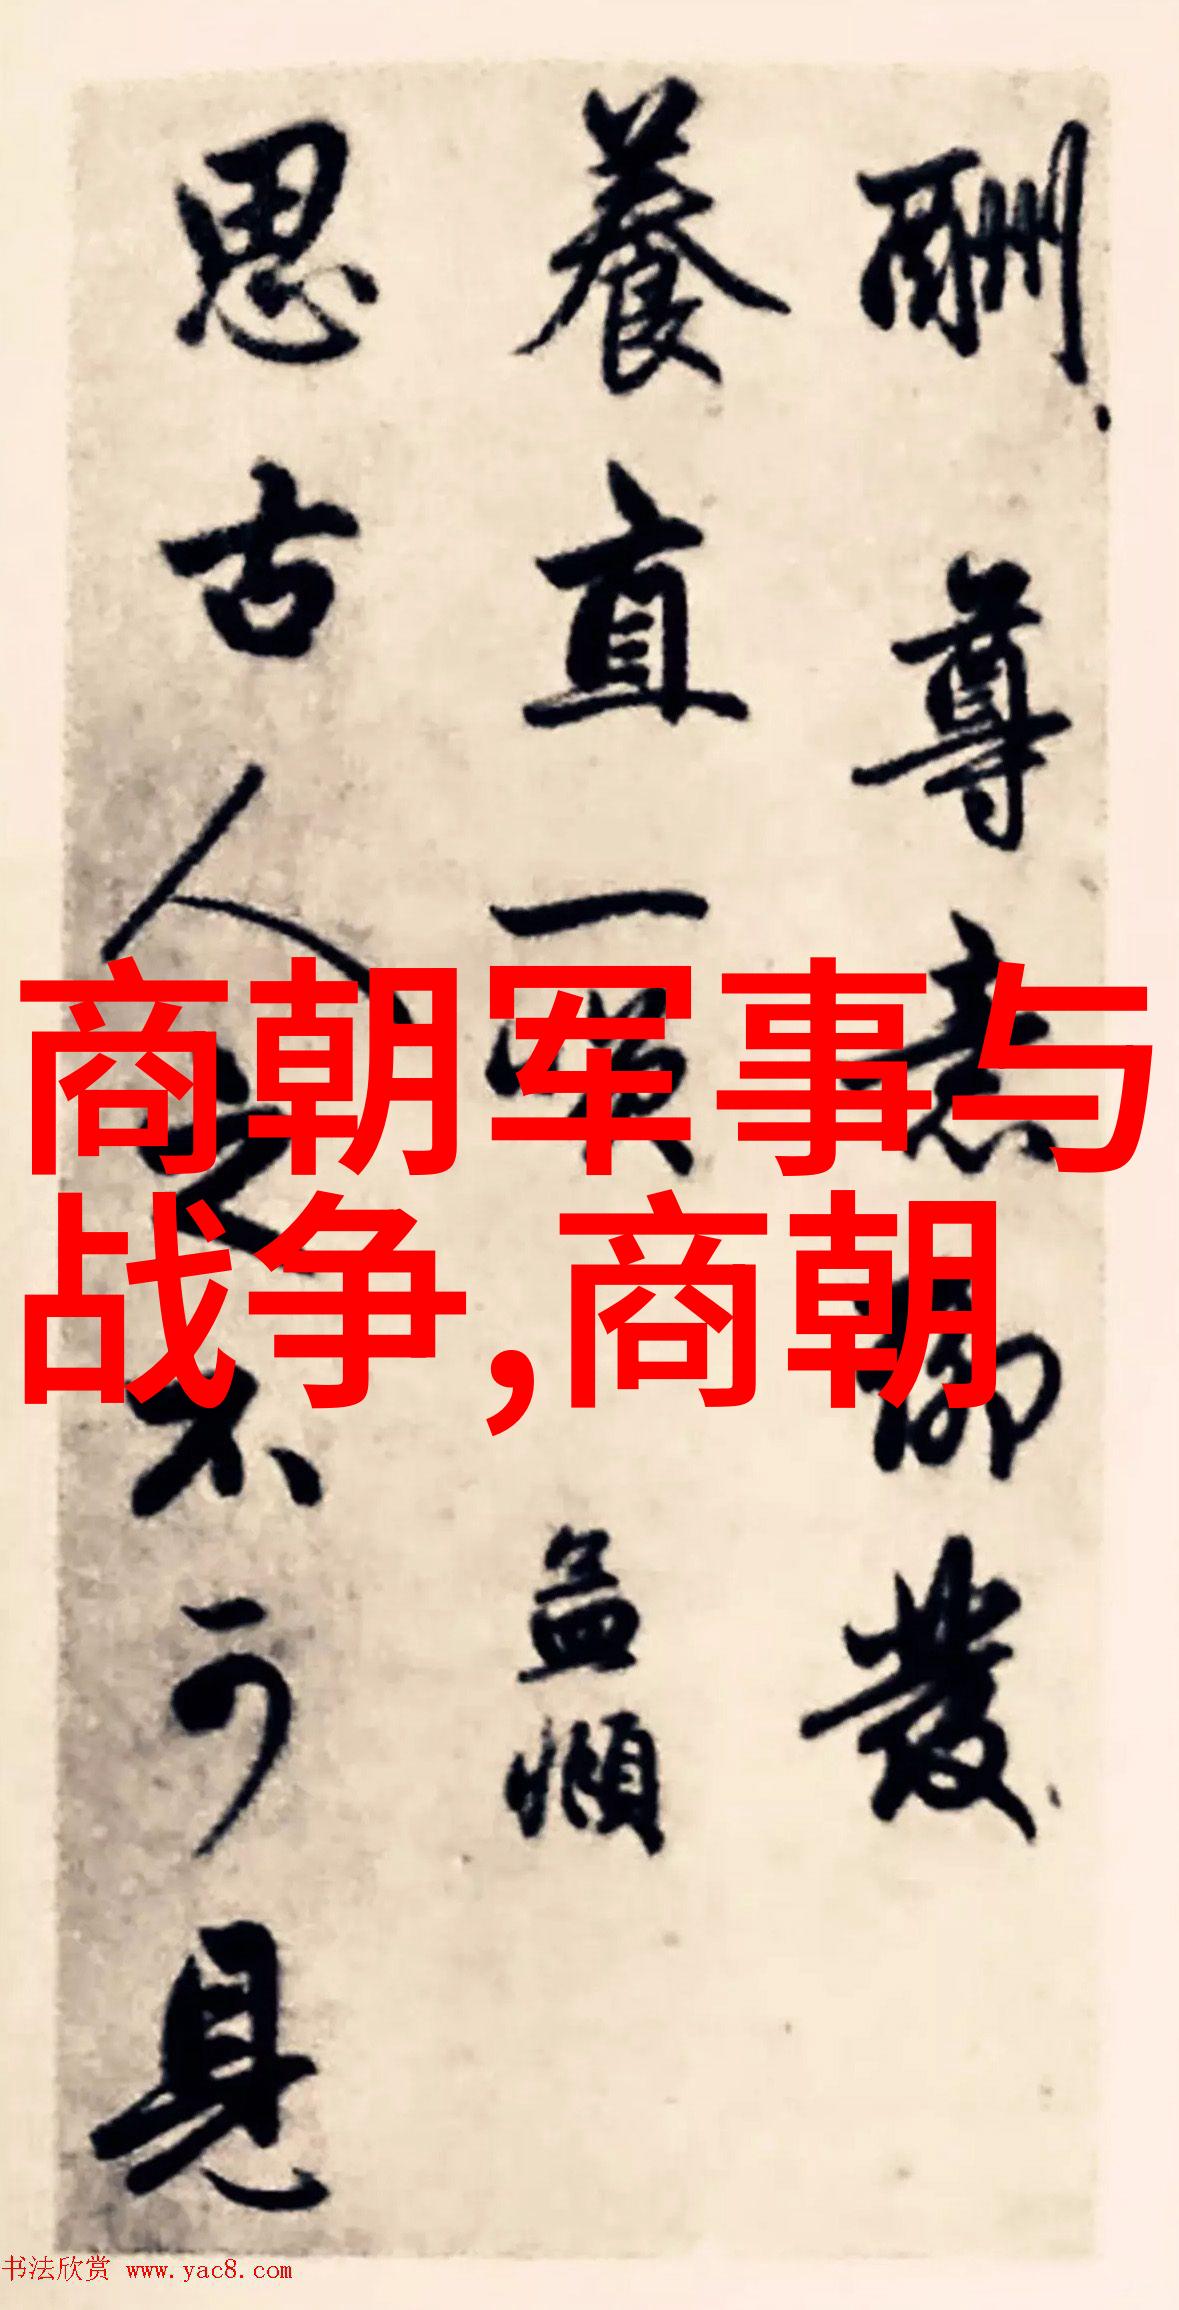 酬尊者聊發
養直一嘆 孟頫
思古人之不可見
商朝军事与
战争,商朝
书法欣赏 www.yac8.com